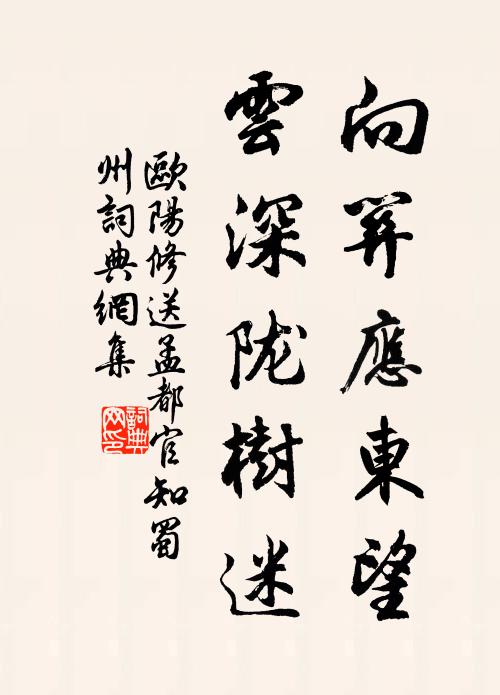 向關應東望
雲深陇樹迷
歐陽修送孟都官知蜀
州詞典網集
詞典网印